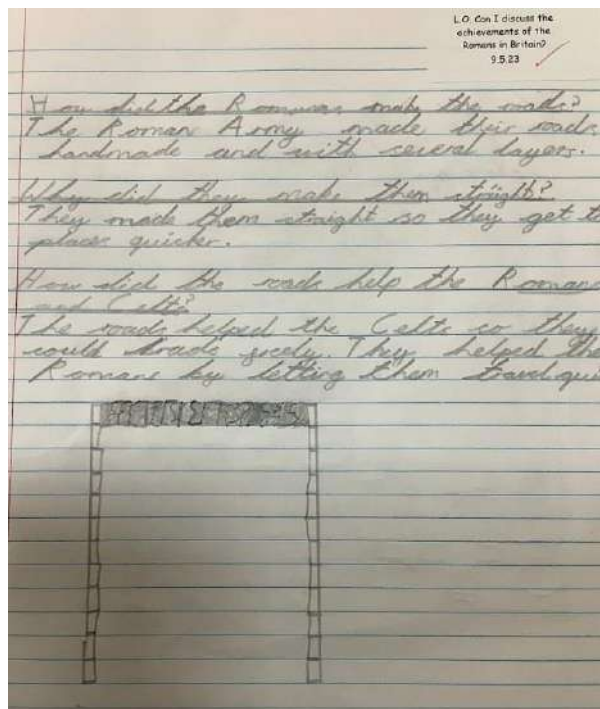 L.O. Can I discuss the
achievements of the
Romans in Britain?
9.5.23
How did the Romans make the roads?
The Roman Army made their roads
handmade and with several layers.
Why did they make them straight?
They made them straight so they get to
places quicker.
How did the roads help the Romans
and Celts?
The roads helped the Celts so they
could trade freely. They helped the
Romans by letting them travel